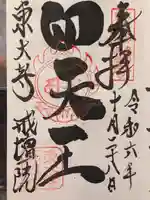 奉拝
令和六年
十月二十八日
四天王
東大寺 戒壇院